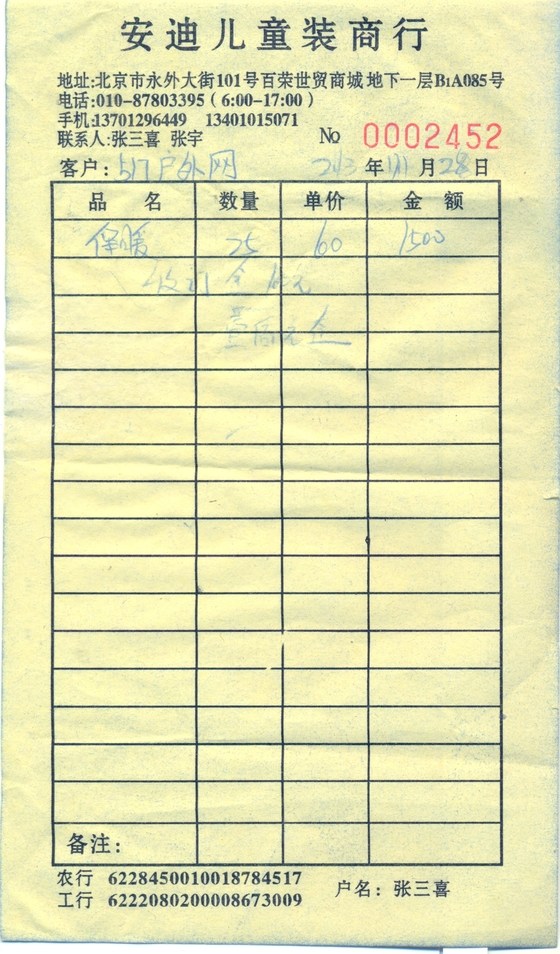 安迪儿童装商行
地址:北京市永外大街101号百荣世贸商城地下一层B1A085号
电话:010-87803395（6:00-17:00）
手机:13701296449 13401015071
联系人:张三喜 张宇 No 0002452
客户: 517户外网 年 11月28日
品 名 数量 单价 金 额
保暖 25 60 1500
收订金 元
备注:
农行 6228450010018784517
工行 6222080200008673009 户名: 张三喜